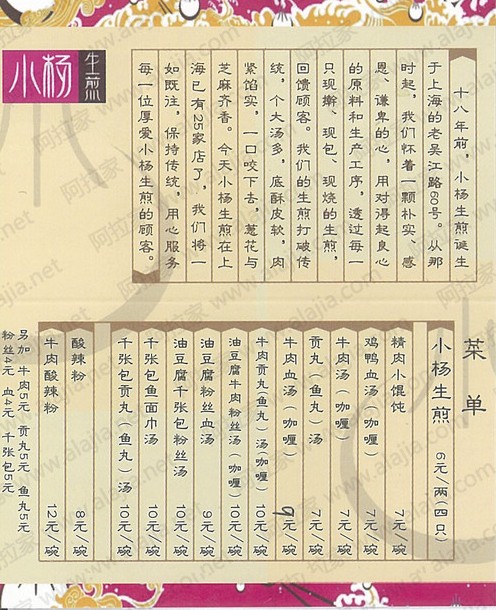 小杨生煎
十八年前，小杨生煎诞生
于上海的老吴江路60号。从那
时起，我们怀着一颗朴实、感
恩、谦卑的心，用对得起良心
的原料和生产工序，透过每一
只现擀、现包、现烧的生煎，
回馈顾客。我们的生煎打破传
统，个大汤多，底酥皮软，肉
紧馅实，一口咬下去，葱花与
芝麻齐香。今天小杨生煎在上
海已有25家店了，我们将一
如既往，保持传统，用心服务
每一位厚爱小杨生煎的顾客。
菜单
小杨生煎 6元/两(四只)
精肉小馄饨 7元/碗
鸡鸭血汤(咖喱) 7元/碗
牛肉汤(咖喱) 7元/碗
贡丸(鱼丸)汤 7元/碗
牛肉血汤(咖喱) 9元/碗
牛肉贡丸鱼丸)汤(咖喱) 10元/碗
油豆腐牛肉粉丝汤(咖喱) 10元/碗
油豆腐粉丝血汤 9元/碗
油豆腐千张包粉丝汤 10元/碗
千张包鱼面巾汤 10元/碗
千张包贡丸(鱼丸)汤 10元/碗
酸辣粉 8元/碗
牛肉酸辣粉 12元/碗
另加 牛肉5元 贡丸5元 鱼丸5元
粉丝4元 血4元 千张包5元
阿拉家 www.alajia.net
www.alajia.com